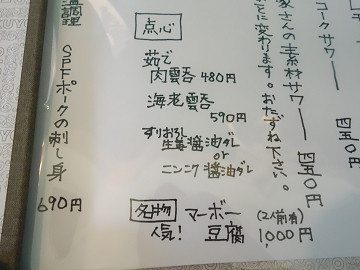 コークサワー 四五〇円
家さんの素材サワー 四五〇円
とに変わります。おたずね下さい。
点心
茹で
肉雲呑 480円
海老雲呑
590円
すりおろし
生姜醤油ダレ
or
ニンニク醤油ダレ
名物 マーボー (2人前有)
人気! 豆腐 1000円
温調理
SPFポークの刺し身
690円